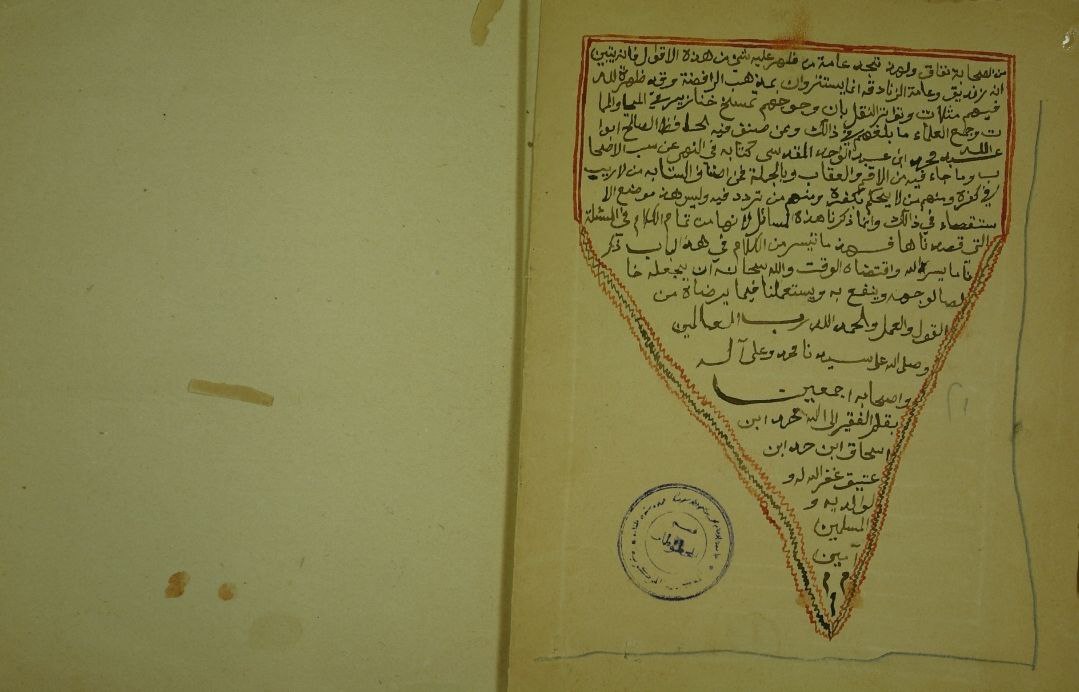 من الصحابة نفاق ولهذا تجد عامة من ظهر عليه شيء من هذه الاقوال فانه يتبين
انه زنديق وعامة الزنادقة انما يستترون بمذهب الرافضة وقد ظهرة لله
فيهم مثلات وتواتر النقل بان وجوههم تمسخ خنازير في المحيا والمما
ت وجمع العلماء ما بلغهم في ذالك وممن صنف فيه الحافظ الصالح ابو
عبد الله محمد ابن عبد الواحد المقدسي كتابه في النهي عن سب الاصحا
ب وما جاء فيه من الاثم والعقاب وبالجملة فمن اصناف السابه من لاريب
في كفره ومنهم من لايحكم بكفره ومنهم من تردد فيه وليس هذا موضع الا
ستقصاء في ذالك وانما ذكرنا هذه المسائل لانها من تمام الكلام في المسئلة
التي قصدناها فهذا ما تيسر من الكلام في هذا الباب ذكر
نا ما يسره الله واقتضاه الوقت والله سبحانه ان يجعله خا
لصا لوجهه وينفع به ويستعملنا فيما يرضاه من
القول والعمل والحمد الله رب العالمين
وصلى الله على سيدنا محمد وعلى آله
واصحابه اجمعين
بقلم الفقير الى الله محمد ابن
اسحاق ابن حمد ابن
عتيق غفر الله له و
لوالديه و
المسلمين
آمين
قسم
المخطوطات